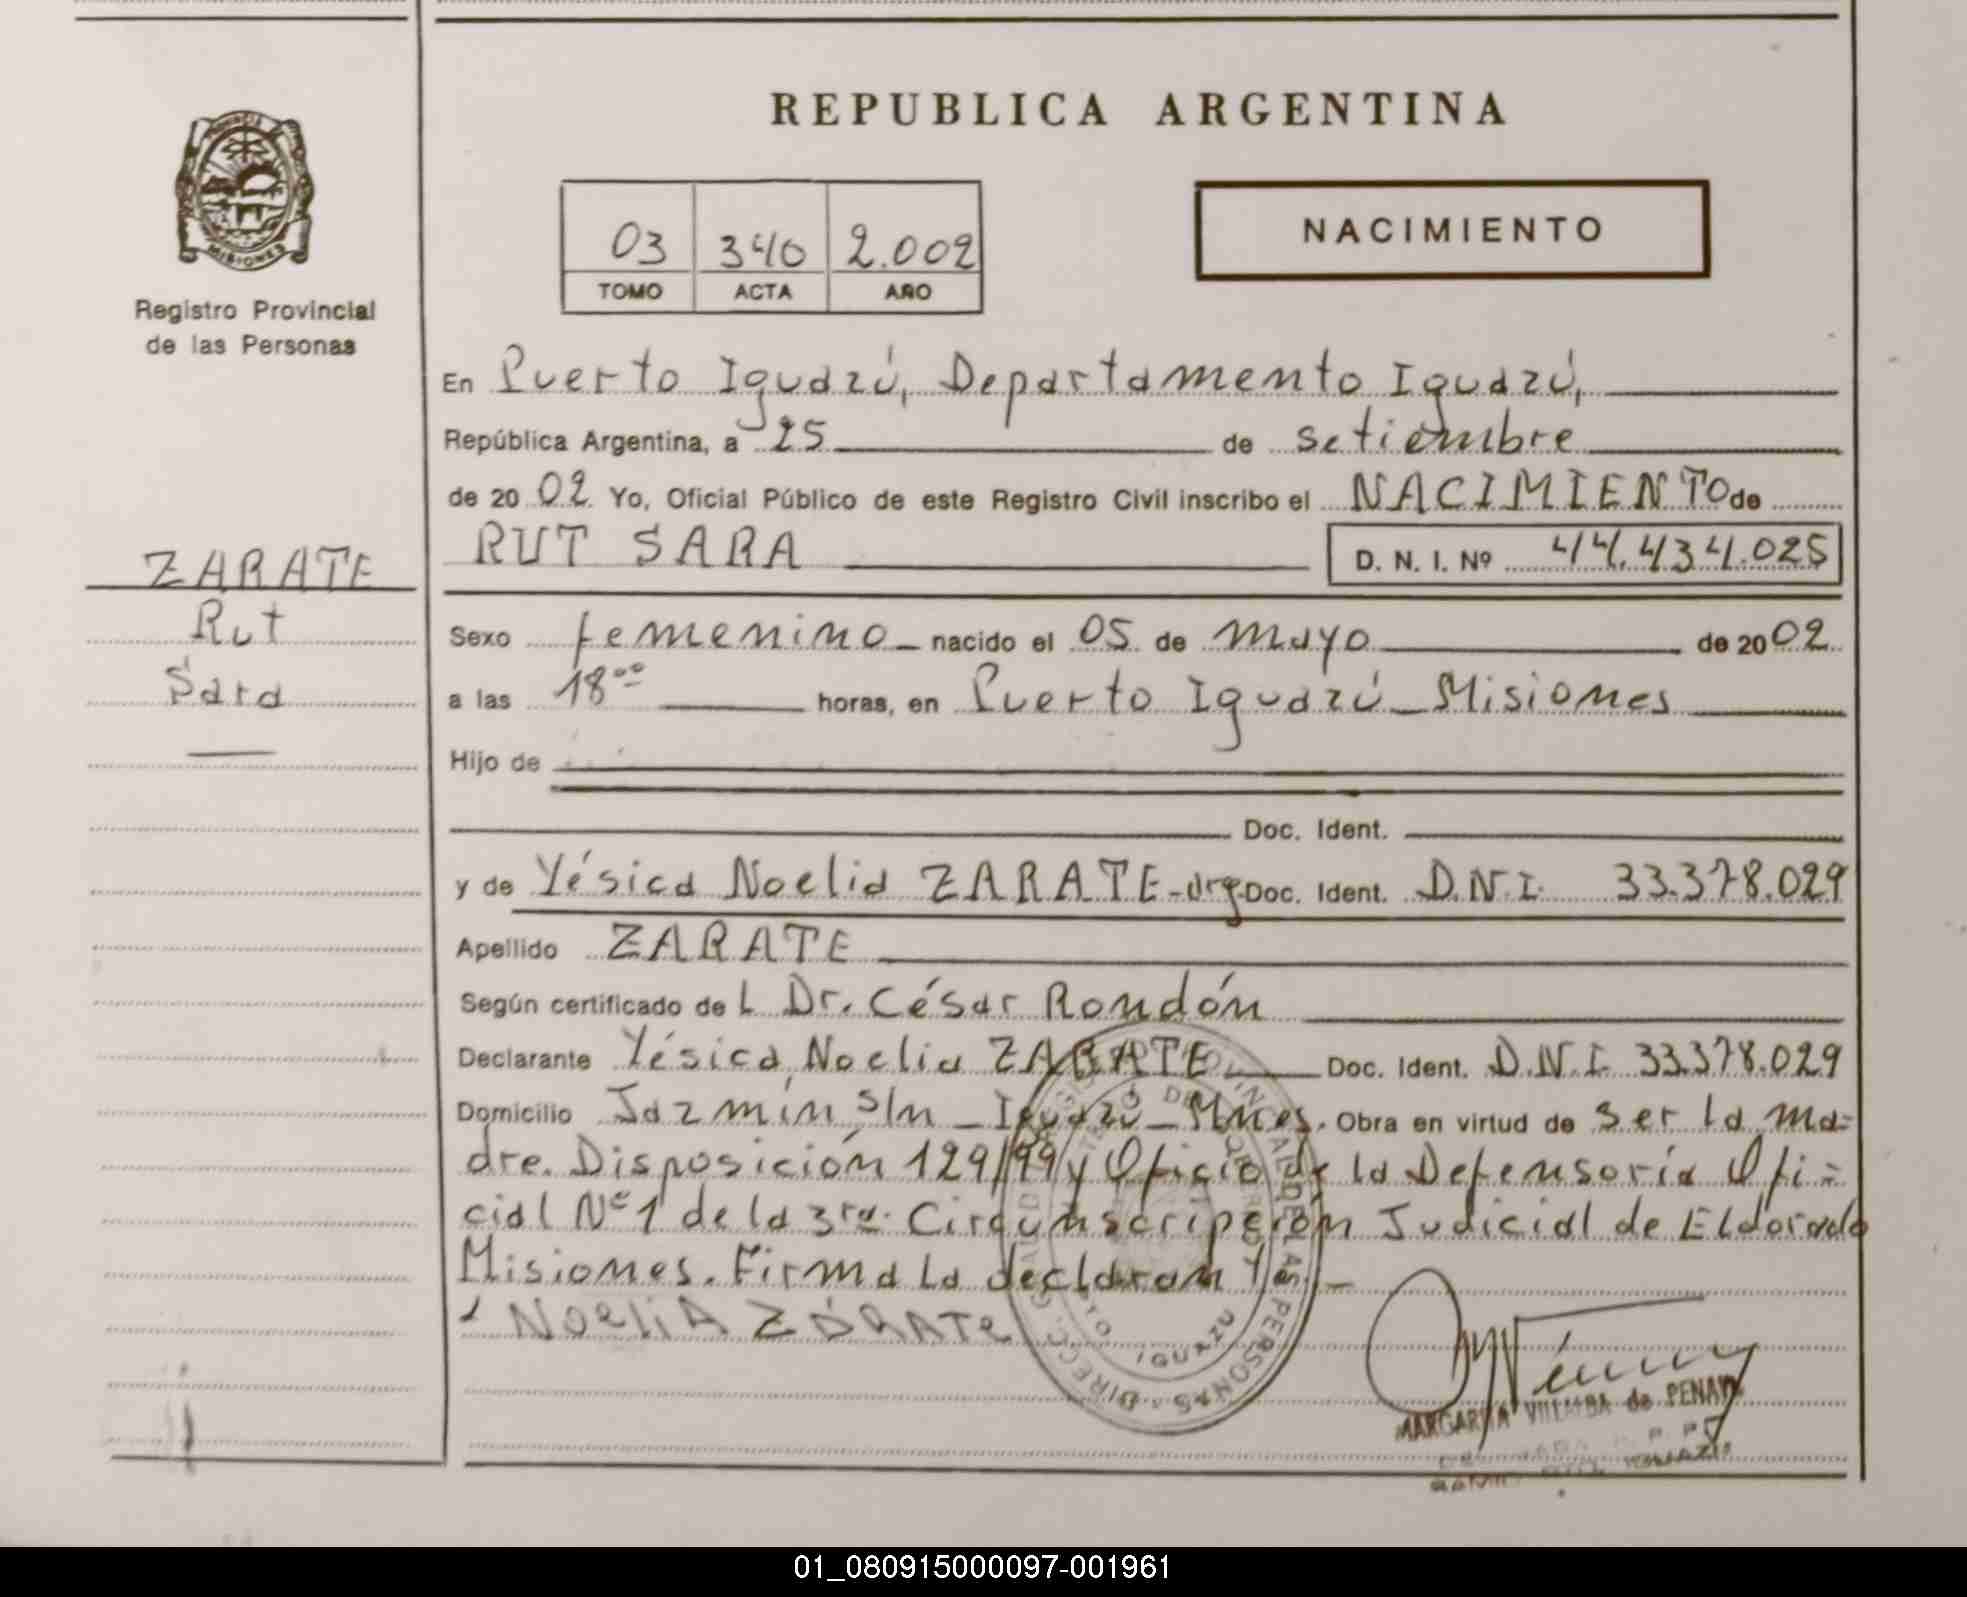 REPUBLICA ARGENTINA
PROVINCIA
MISIONES
Registro Provincial
de las Personas
03 340 2.002
TOMO ACTA AÑO
NACIMIENTO
En Puerto Iguazú, Departamento Iguazú,
República Argentina, a 25 de setiembre
de 20 02 Yo, Oficial Público de este Registro Civil inscribo el NACIMIENTO de
RUT SARA D. N. I. Nº 44.434.025
ZARATE
Rut
Sara
Sexo femenino nacido el 05 de mayo de 20 02
a las 18ºº horas, en Puerto Iguazú _ Misiones
Hijo de
Doc. Ident.
y de Yésica Noelia ZARATE - arg. Doc. Ident. D.N.I. 33.378.029
Apellido ZARATE
Según certificado de L Dr. César Rondón
Declarante Yésica Noelia ZARATE Doc. Ident. D.N.I. 33.378.029
Domicilio Jazmín s/n _ Iguazú _ Mnes. Obra en virtud de ser la ma-
dre. Disposición 129/99 y Oficio de la Defensoría Ofi-
cial Nº 1 de la 3ra. Circunscripción Judicial de Eldorado
Misiones. Firma la declarante. _
NOELIA ZARATE
IGUAZU
MARGARITA VILLALBA de PENAYO
01_080915000097-001961